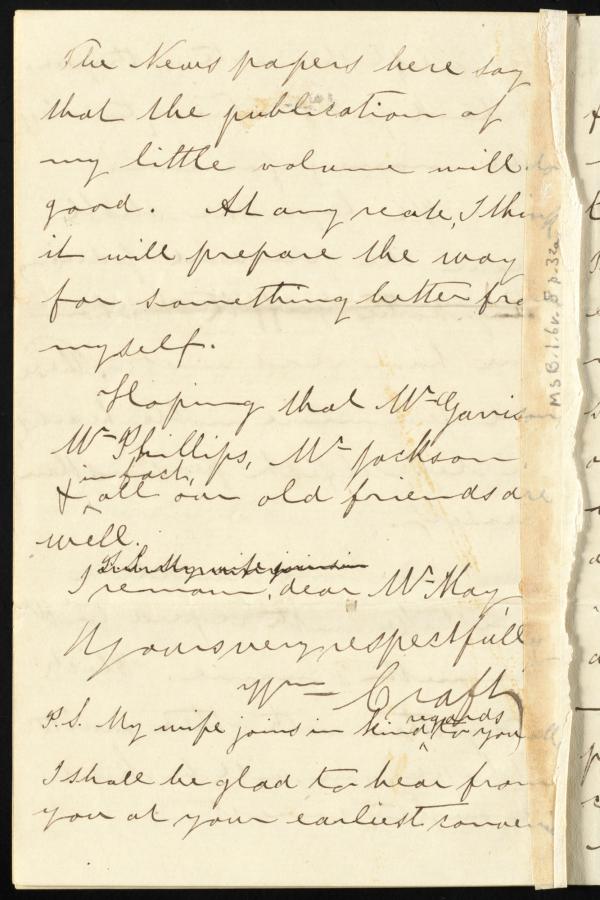 The News papers here say
that the publication of
my little volume will do
good. At any reate, I think
it will prepare the way
for something better fro
myself.
Hoping that Mr Garrison
Mr Phillips, Mr Jackson
& in fact, all our old friends are
well.
I remain, dear Mr May
Yours very respectfully
Wm Craft
P.S. My wife joins in kind regards to you
I shall be glad to hear from
you at your earliest conven
MS B.1.6 v. 8 p. 32a